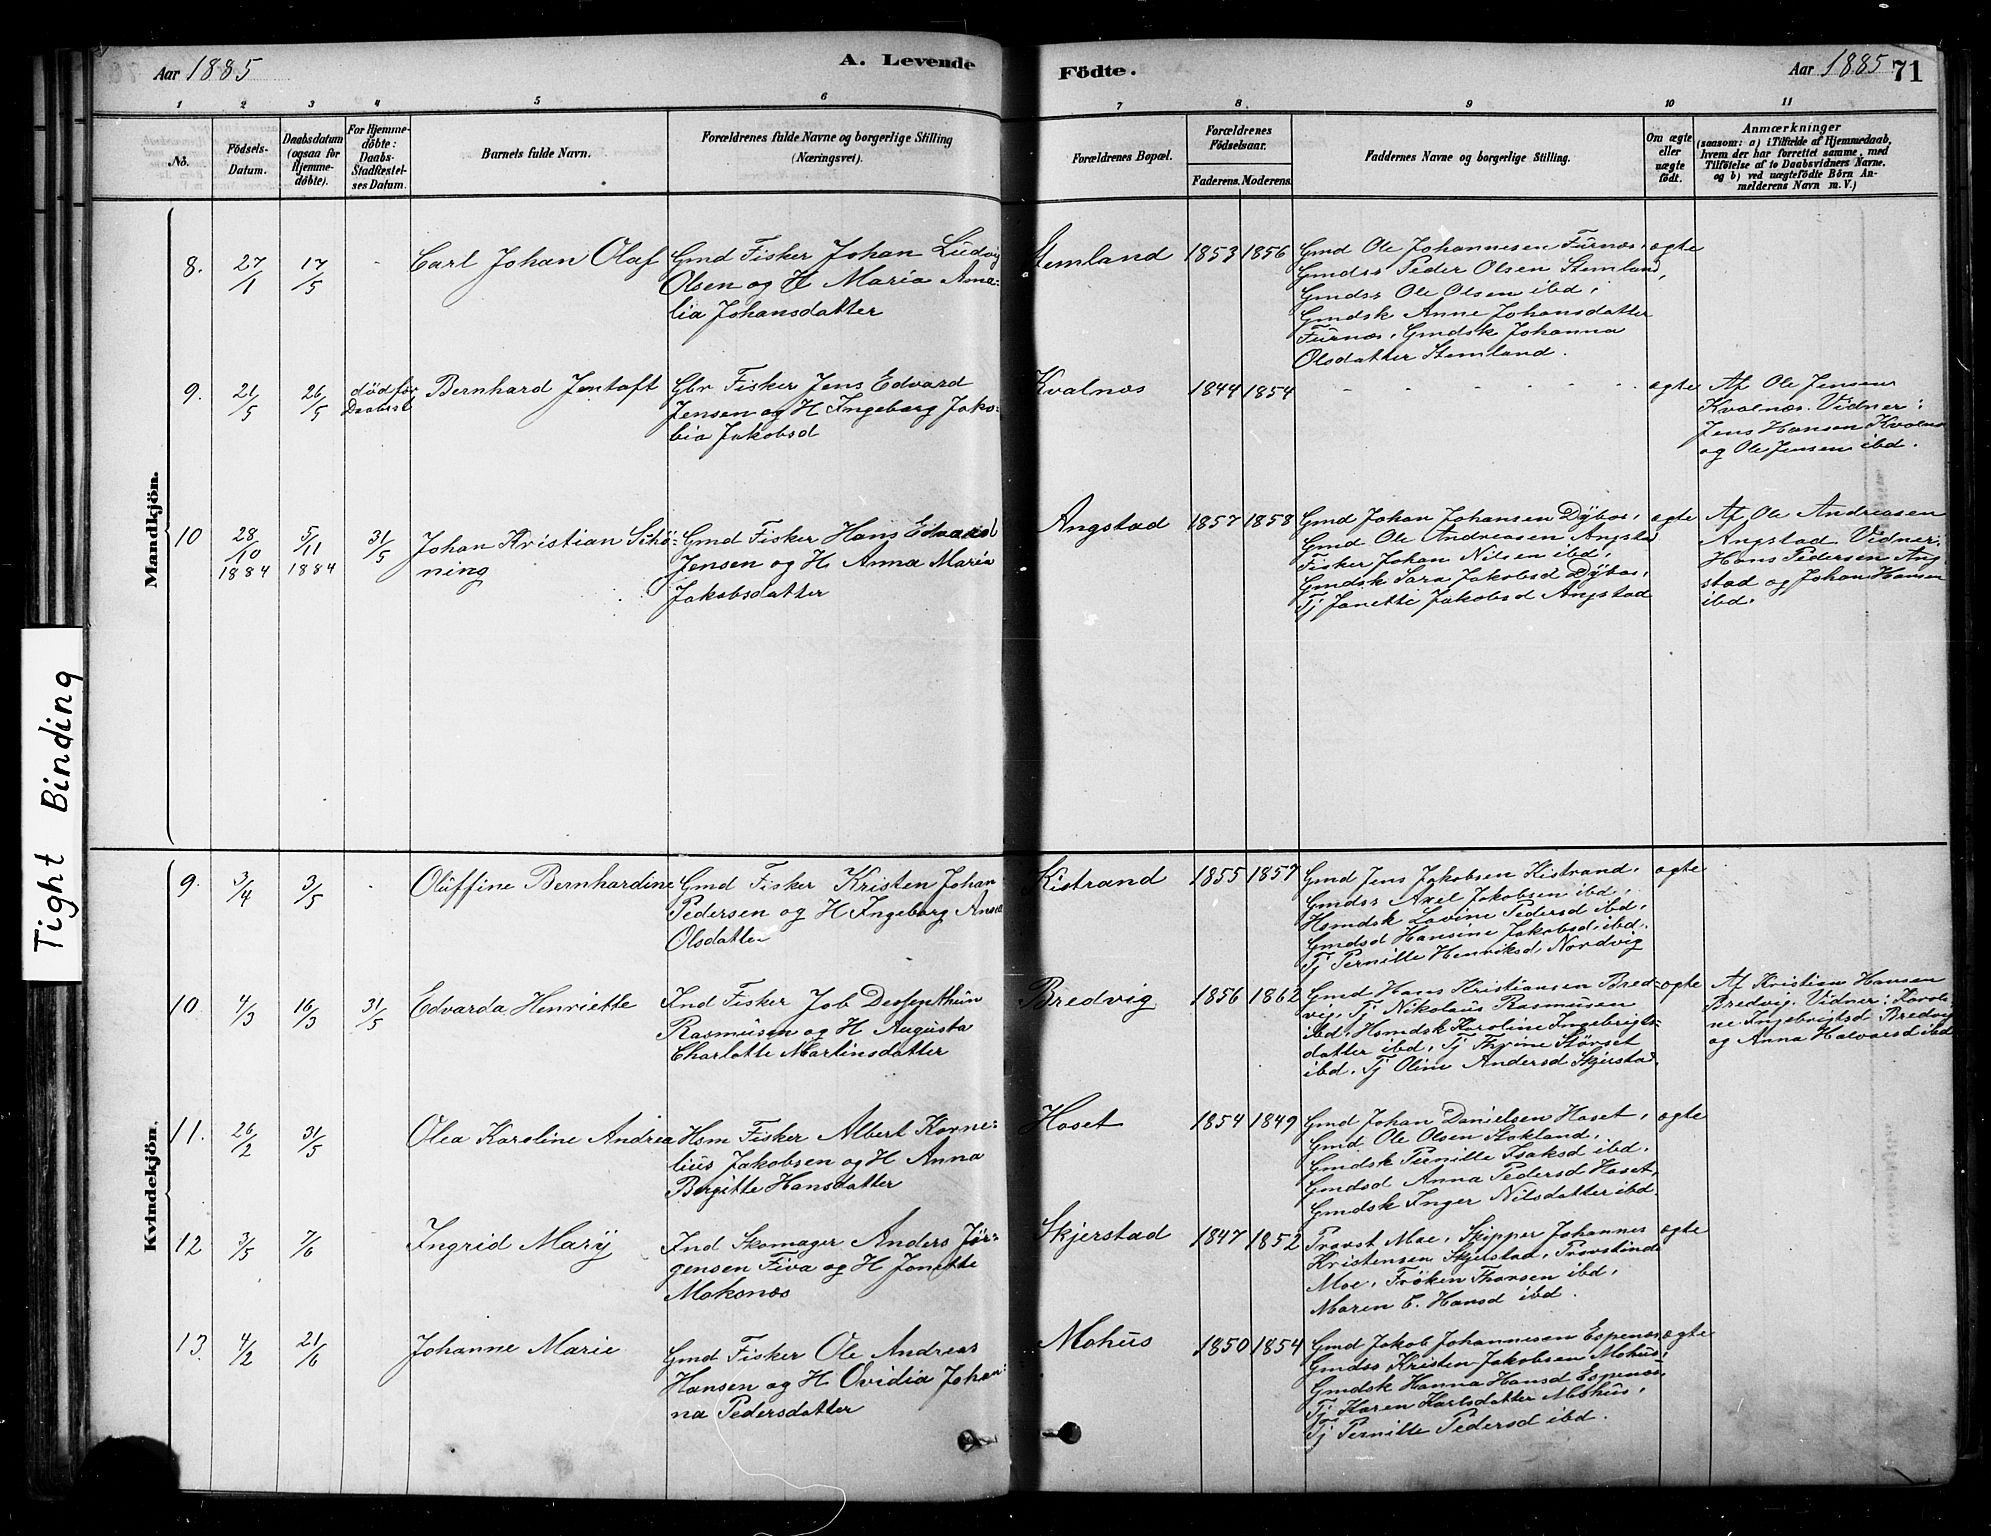 Aar 1885
A. Levende
Födte.
Aar 1885 71
1 2 3 4 5 6 7 8. 9 10 11
No.
Födsels-
Datum.
Daabsdatum
(ogsaa for
Hjemme-
döbte).
For Hjemme-
döbte:
Daabs-
Stadfæstel-
ses Datum.
Barnets fulde Navn.
Forældrenes fulde Navne og borgerlige Stilling
(Næringsvei).
Forældrenes Bopæl.
Forældrenes
Födselsaar.
Faderens. Moderens.
Faddernes Navne og borgerlige Stilling.
Om ægte
eller
uægte
födt.
Anmærkninger
(saasom: a) i Tilfælde af Hjemmedaab,
hvem der har forrettet samme, med
Tilföielse af to Daabsvidners Navne,
og b) ved uægtefödte Börn An-
melderens Navn m. V.)
Mandkjön.
8. 27/1 17/5 - Carl Johan Olaf
Gmd Fisker Johan Ludvig
Olsen og H Maria Ama-
lia Johansdatter
Stemland 1853 1856
Gmd Ole Johannesen Furnæs,
Gmdss Peder Olsen Stemland,
Gmdss Ole Olsen ibd,
Gmdsk Anne Johansdatter
Furnæs, Gmdsk Johanna
Olsdatter Stemland.
ægte
9. 21/5 26/5 død før
Daabsst
Bernhard Jentoft
Gbr Fisker Jens Edvard
Jensen og H Ingeborg Jako-
bia Jakobsd
Kvalnæs 1844 1854
- - - - - -
ægte
Af Ole Jensen
Kvalnæs. Vidner:
Jens Hansen Kvalnæs
og Ole Jensen ibd.
10 28/10 1884 5/11 1884 31/5
Johan Kristian Schø-
ning
Gmd Fisker Hans Edvard
Jensen og H Anna Maria
Jakobsdatter
Angstad 1857 1858
Gmd Johan Johansen Dybos,
Gmd Ole Andreasen Angstad
Fisker Johan Nilsen ibd,
Gmdsk Sara Jakobsd Dybos,
Tj Janetti Jakobsd Angstad
ægte
Af Ole Andreasen
Angstad Vidner:
Hans Pedersen Ang
stad og Johan Hansen
ibd.
Kvindekjön.
9. 3/4 3/5 - Oluffine Bernhardine
Gmd Fisker Kristen Johan
Pedersen og H Ingeborg Anna
Olsdatter
Kistrand 1855 1857
Gmd Jens Jakobsen Kistrand,
Gmdss Axel Jakobsen ibd,
Hsmdsk Lovine Pedersd ibd,
Gmdsd Hansine Jakobsd ibd.
Tj Pernille Henriksd, Nordvig
ægte
10. 4/3 16/3 31/5 Edvarda Henriette
Ind Fisker Job
Rasmusen og H Augusta
Charlotte Martinsdatter
Bredvig 1856 1862
Gmd Hans Kristiansen Bred-
vig, Tj Nikolaus Rasmusen
ibd, Hsmdsk Karoline Ingebrigts-
datter ibd, Tj Thrine Størset
ibd. Tj Oline Andersd Skjerstad.
ægte
Af Kristian Hansen
Bredvig. Vidner: Karoli-
ne Ingebrigtsd Bredvig
og Anna Halvorsd ibd
11. 26/2 31/5 Olea Karoline Andrea
Hsm Fisker Albert Korne-
lius Jakobsen og H Anna
Birgitte Hansdatter
Hoset 1854 1849
Gmd Johan Danielsen Hoset,
Gmd Ole Olsen Stokland,
Gmdsk Pernille Isaksd ibd.
Gmdsd Anna Pedersd Hoset,
Gmdsk Inger Nilsdatter ibd.
ægte
12 3/5 7/6 Ingrid Mary
Ind Skomager Anders Jør-
gensen Fiva og H Jonette
Moksnæs
Skjerstad 1847 1852
Provst Moe, Skipper Johannes
Kristensen Skjerstad, Provstinde
Moe, Frøken Thorsen ibd,
Maren E. Hansd ibd.
ægte
13. 4/2 21/6 Johanne Marie
Gmd Fisker Ole Andreas
Hansen og H Ovidia Johan-
na Pedersdatter
Mohus 1850 1854
Gmd Jakob Johannesen Espenæs,
Gmdss Kristen Jakobsen Mohus,
Gmdsk Hanna Hansd Espenæs,
Tj Karen Karlsdatter Mohus,
Tj Pernille Pedersd ibd.
ægte
Tight Binding